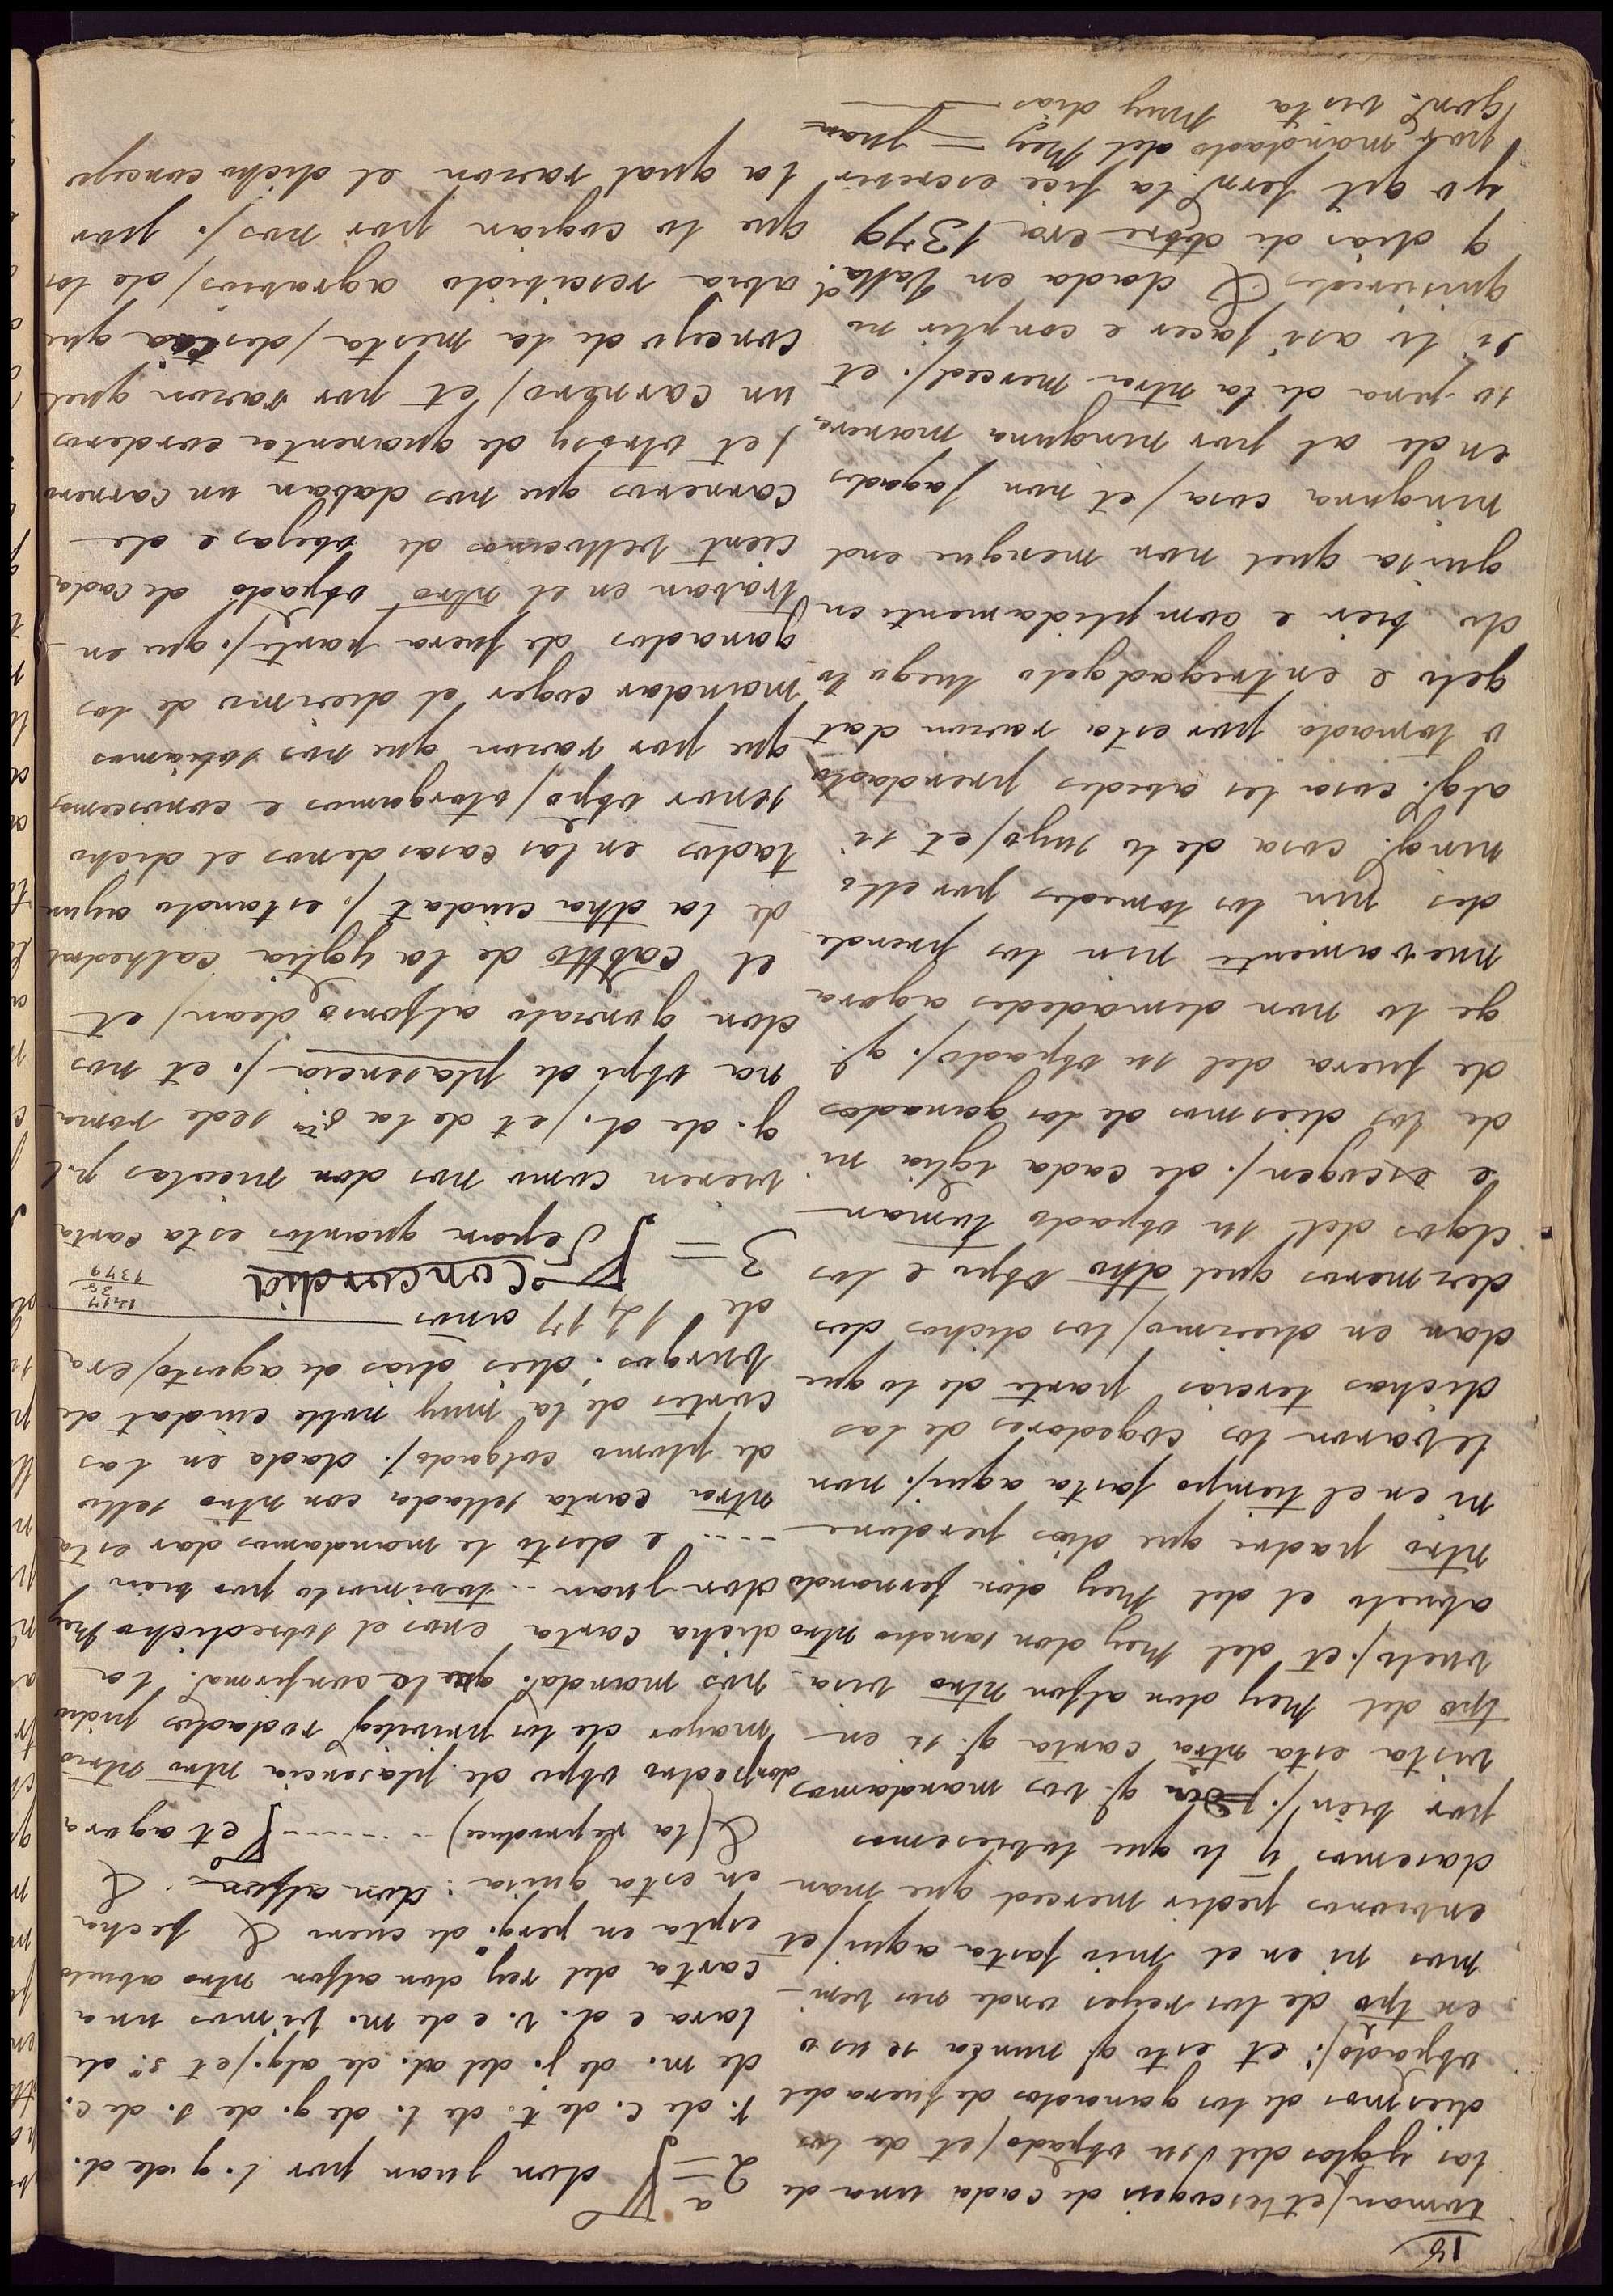 15
toman/ et escogen de cada una de
las yglas del su obpado/ et de los
diesmos de los ganados de fuera del
obpado/: et esto q̃ nunca se uso
en tpo de los reyes onde nos veni-
mos ni en el mio fasta aqui/ et
enbionos pedir merced que man
dasemos y lo que tobiesemos
por bien/. q̃ vos mandamos
vista esta ntra carta q̃ si en
tpo del Rey don alfon ntro visa
buelo/. et del Rey don sancho ntro
abuelo et del Rey don fernando
ntro padre que dios perdone
ni en el tiempo fasta aqui/. non
lebaron los cogedores de las
dichas tercias parte de lo que
dan en diezmo/ los dichos dos
desmeros quel dho obpo e los
clgos del su obpado toman
e escogen/. de cada iglia ni
de los diesmos de los ganados
de fuera del su obpado/. q̃
ge lo non demandedes agora
nuevamente nin los prende-
des nin los tomedes por ello
ning.ª cosa de lo suyo/ et si
alg.ª cosa les abedes prendado
o tomado por esta razon dat
gelo e entregadgelo luego to
do bien e complidamente en
guisa quel non mengue end
ninguna cosa/ et non fagades
ende al por ninguna manera
so pena de la ntra merced/. et
si lo asi facer e conplir no
quisieredes & dada en Vallad
9 dias de dbre era 1379
yo gil fern.z la fice escrevir
por mandado del Rey = Juan
gonz. vista Ruy dias
2ª = don Juan por l. g. de d.
r. de c. de t. de l. de g. de s. de c.
de m. de j. del al. de alg./ et s.or de
lara e d. v. e de m. vimos una
carta del rey don alfon ntro abuelo
espta en perg.º de cuero & fecha
en esta guisa: don alfon &.
& (la reproduce) ...... et agora
don pedro obpo de plasencia ntro ntrio
mayor de los privileg.s rodados pidio
nos mandar. que le confirma.r la
dicha carta enos el sobredicho Rey
don Juan .. tovimoslo por bien
.... e desto le mandamos dar esta
ntra carta sellada con ntro sello
de plomo colgado/. dada en las
cortes de la muy noble ciudat de
burgos. dies dias de agosto/ era
de 1417 anos
1417
38
1379
3 = Concordia
Sepan quantos esta carta
vieren como nos don nicolas p.l
g. de d./ et de la s.ta sede roma
na obpo de plasencia /. et nos
don gonzalo alfonso dean/ et
el cabillo de la yglia cathedral
de la dha ciudat/. estando ayun
tados en las casas de nos el dicho
senor obpo/ otorgamos e conoscemos
que por razon que nos soliamos
mandar coger el diezmo de los
ganados de fuera parte/. que en
traban en el ntro obpado de cada
cient vellocinos de obejas e de
carneros que nos daban un carnero
/ et otrosy de quarenta corderos
un carnero/ et por razon quel
concejo de la mesta/ desia que
abia rescibido agrabios/ de los
que lo cogian por nos/. por
la qual razon el dicho concejo